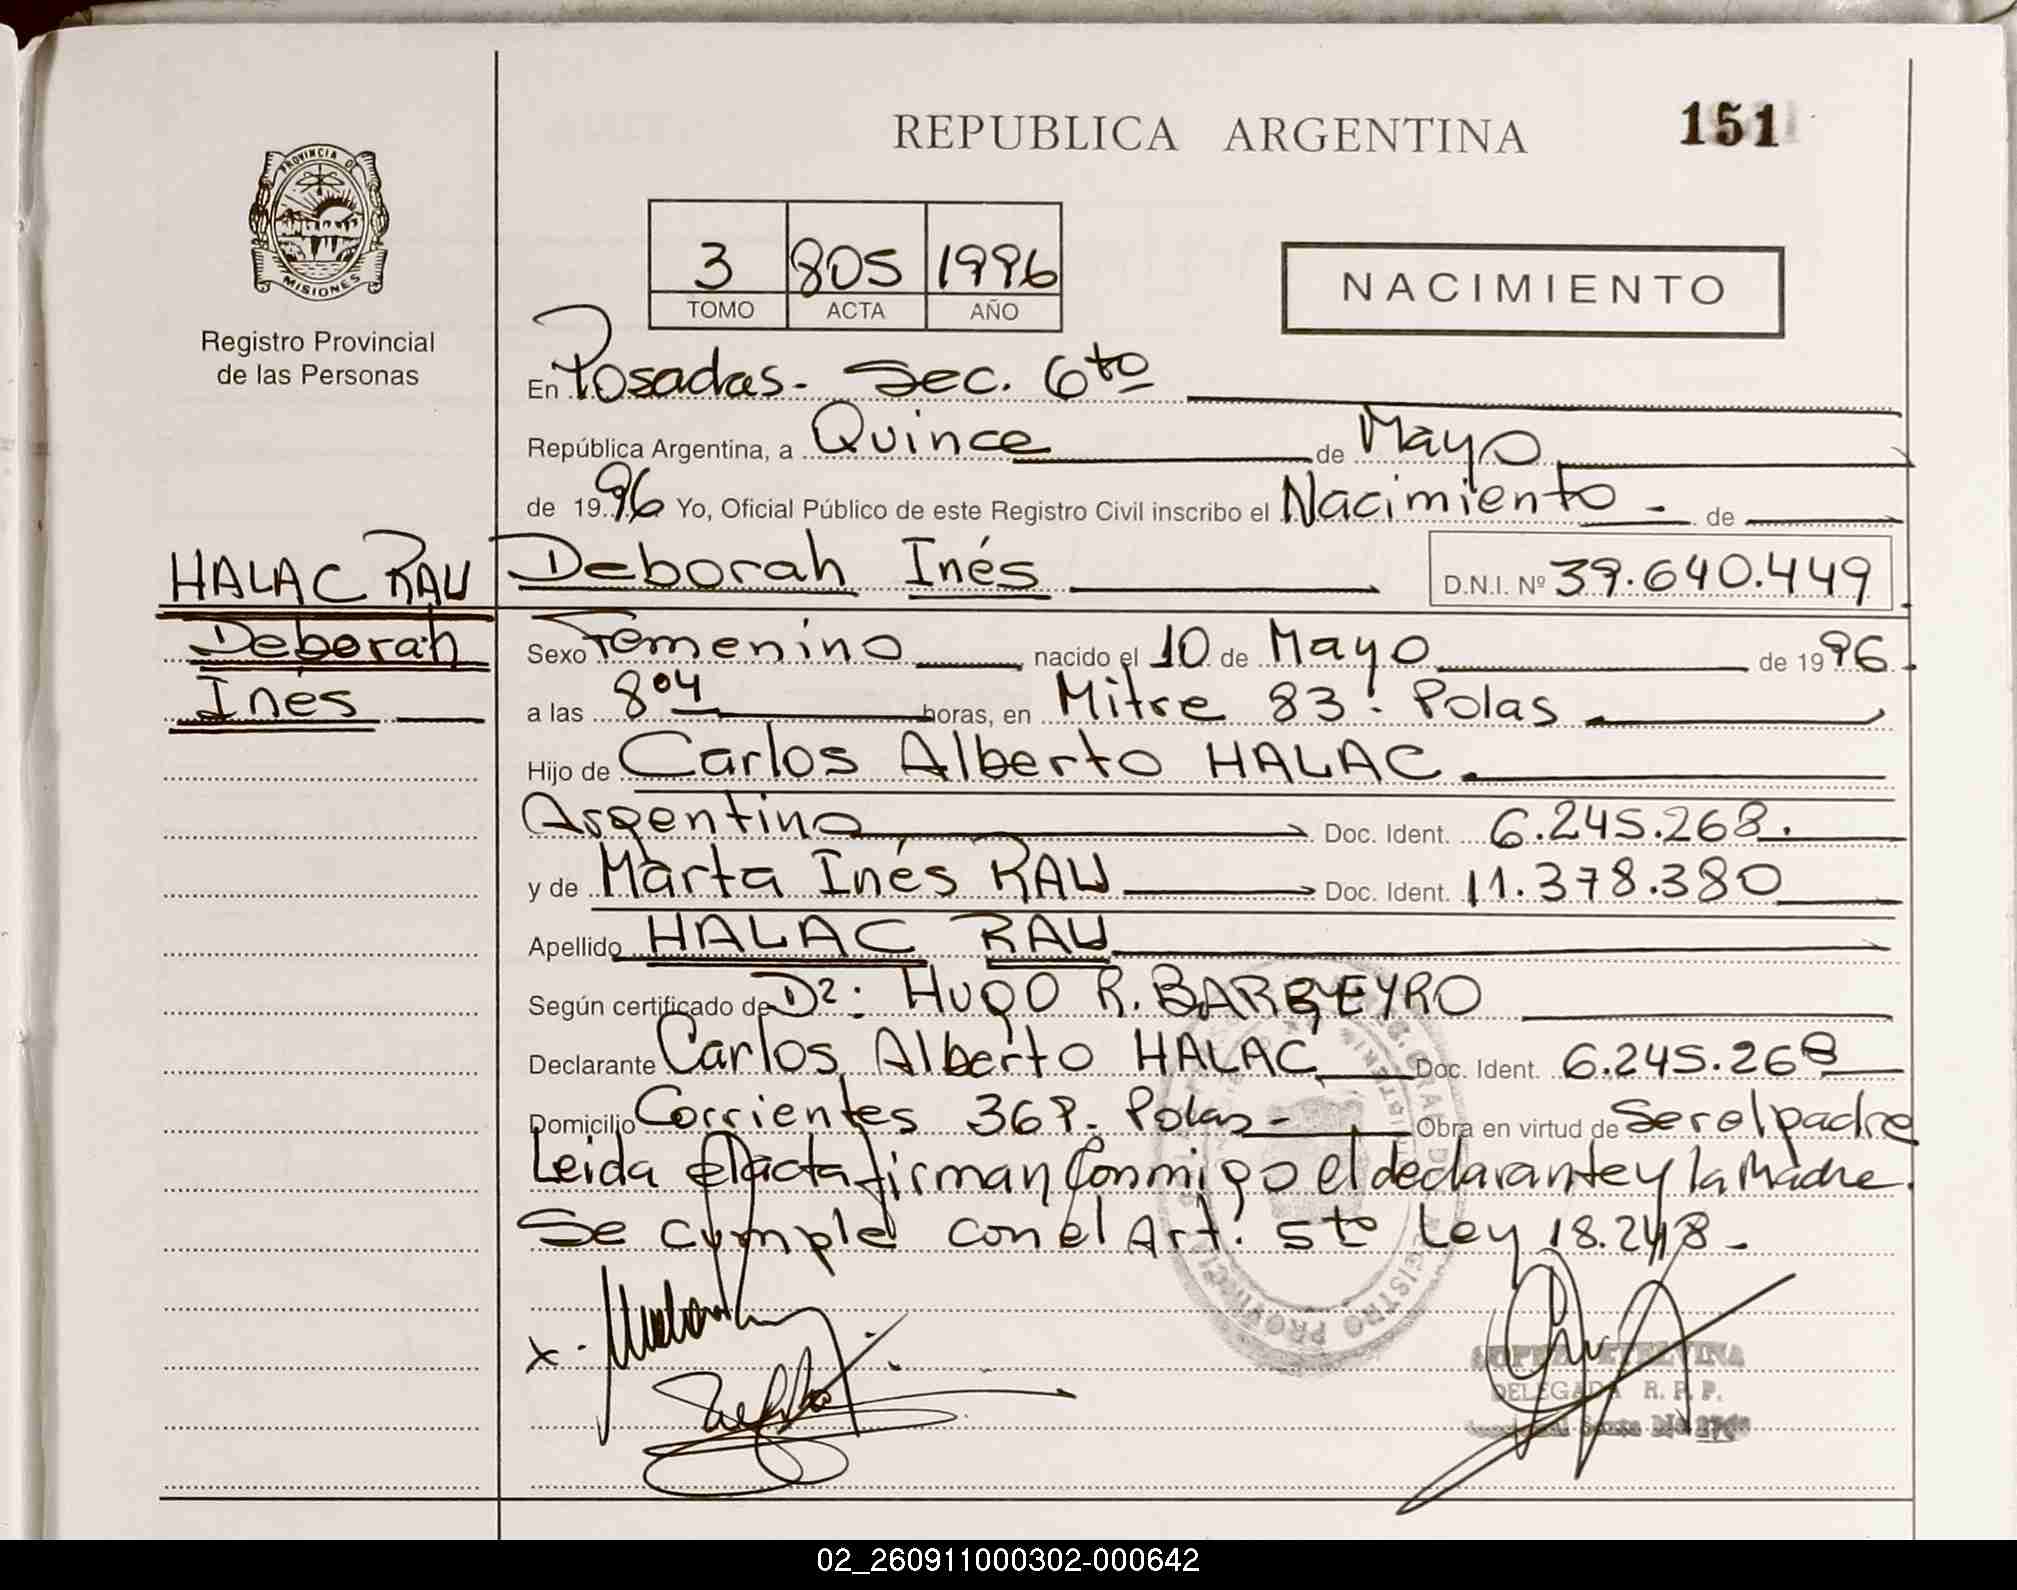 REPUBLICA ARGENTINA
151
PROVINCIA DE
MISIONES
Registro Provincial
de las Personas
3 805 1996
TOMO ACTA AÑO
NACIMIENTO
En Posadas - Sec. 6to
República Argentina, a Quince de Mayo
de 1996 Yo, Oficial Público de este Registro Civil inscribo el Nacimiento - de
HALAC RAU
Deborah
Inés
Deborah Inés D.N.I. Nº 39.640.449
Sexo Femenino nacido el 10 de Mayo de 1996.
a las 8 04 horas, en Mitre 83. Pdas
Hijo de Carlos Alberto HALAC
Argentino Doc. Ident. 6.245.268.
y de Marta Inés RAU Doc. Ident. 11.378.380
Apellido HALAC RAU
Según certificado de Dr: HUGO R. BARREYRO
Declarante Carlos Alberto HALAC Doc. Ident. 6.245.268
Domicilio Corrientes 368. Pdas - Obra en virtud de Ser el padre
Leida el acta firman Conmigo el declarante y la Madre.
Se cumple con el Art. 5to Ley 18.248 -
x.
LOPEZ ETELVINA
DELEGADA R. P. P.
02_260911000302-000642